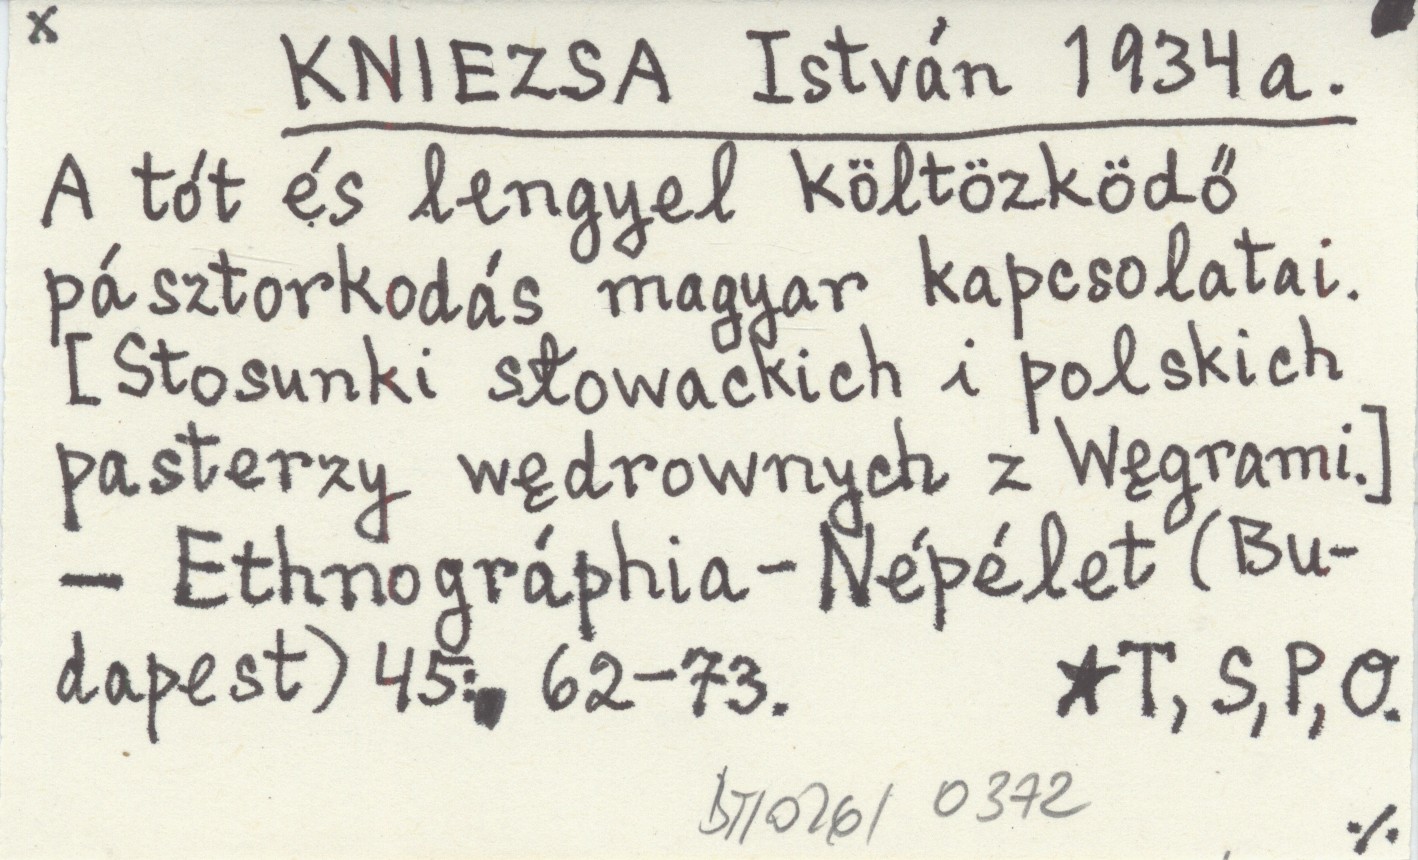 x
KNIEZSA István 1934a.
A tót és lengyel költözködő
pásztorkodás magyar kapcsolatai.
[Stosunki słowackich i polskich
pasterzy wędrownych z Węgrami.]
— Ethnográphia-Népélet (Bu-
dapest) 45: 62-73. ★T, S, P, O.
BT/026/ 0372
·/·